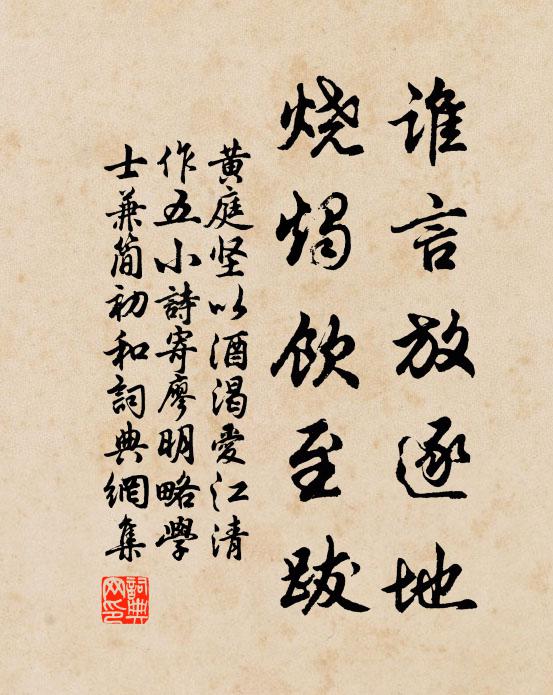 谁言放逐地
烧烛饮至跋
黄庭坚以酒渴爱江清
作五小詩寄廖明略學
士兼简初和詞典網集
詞典
网印